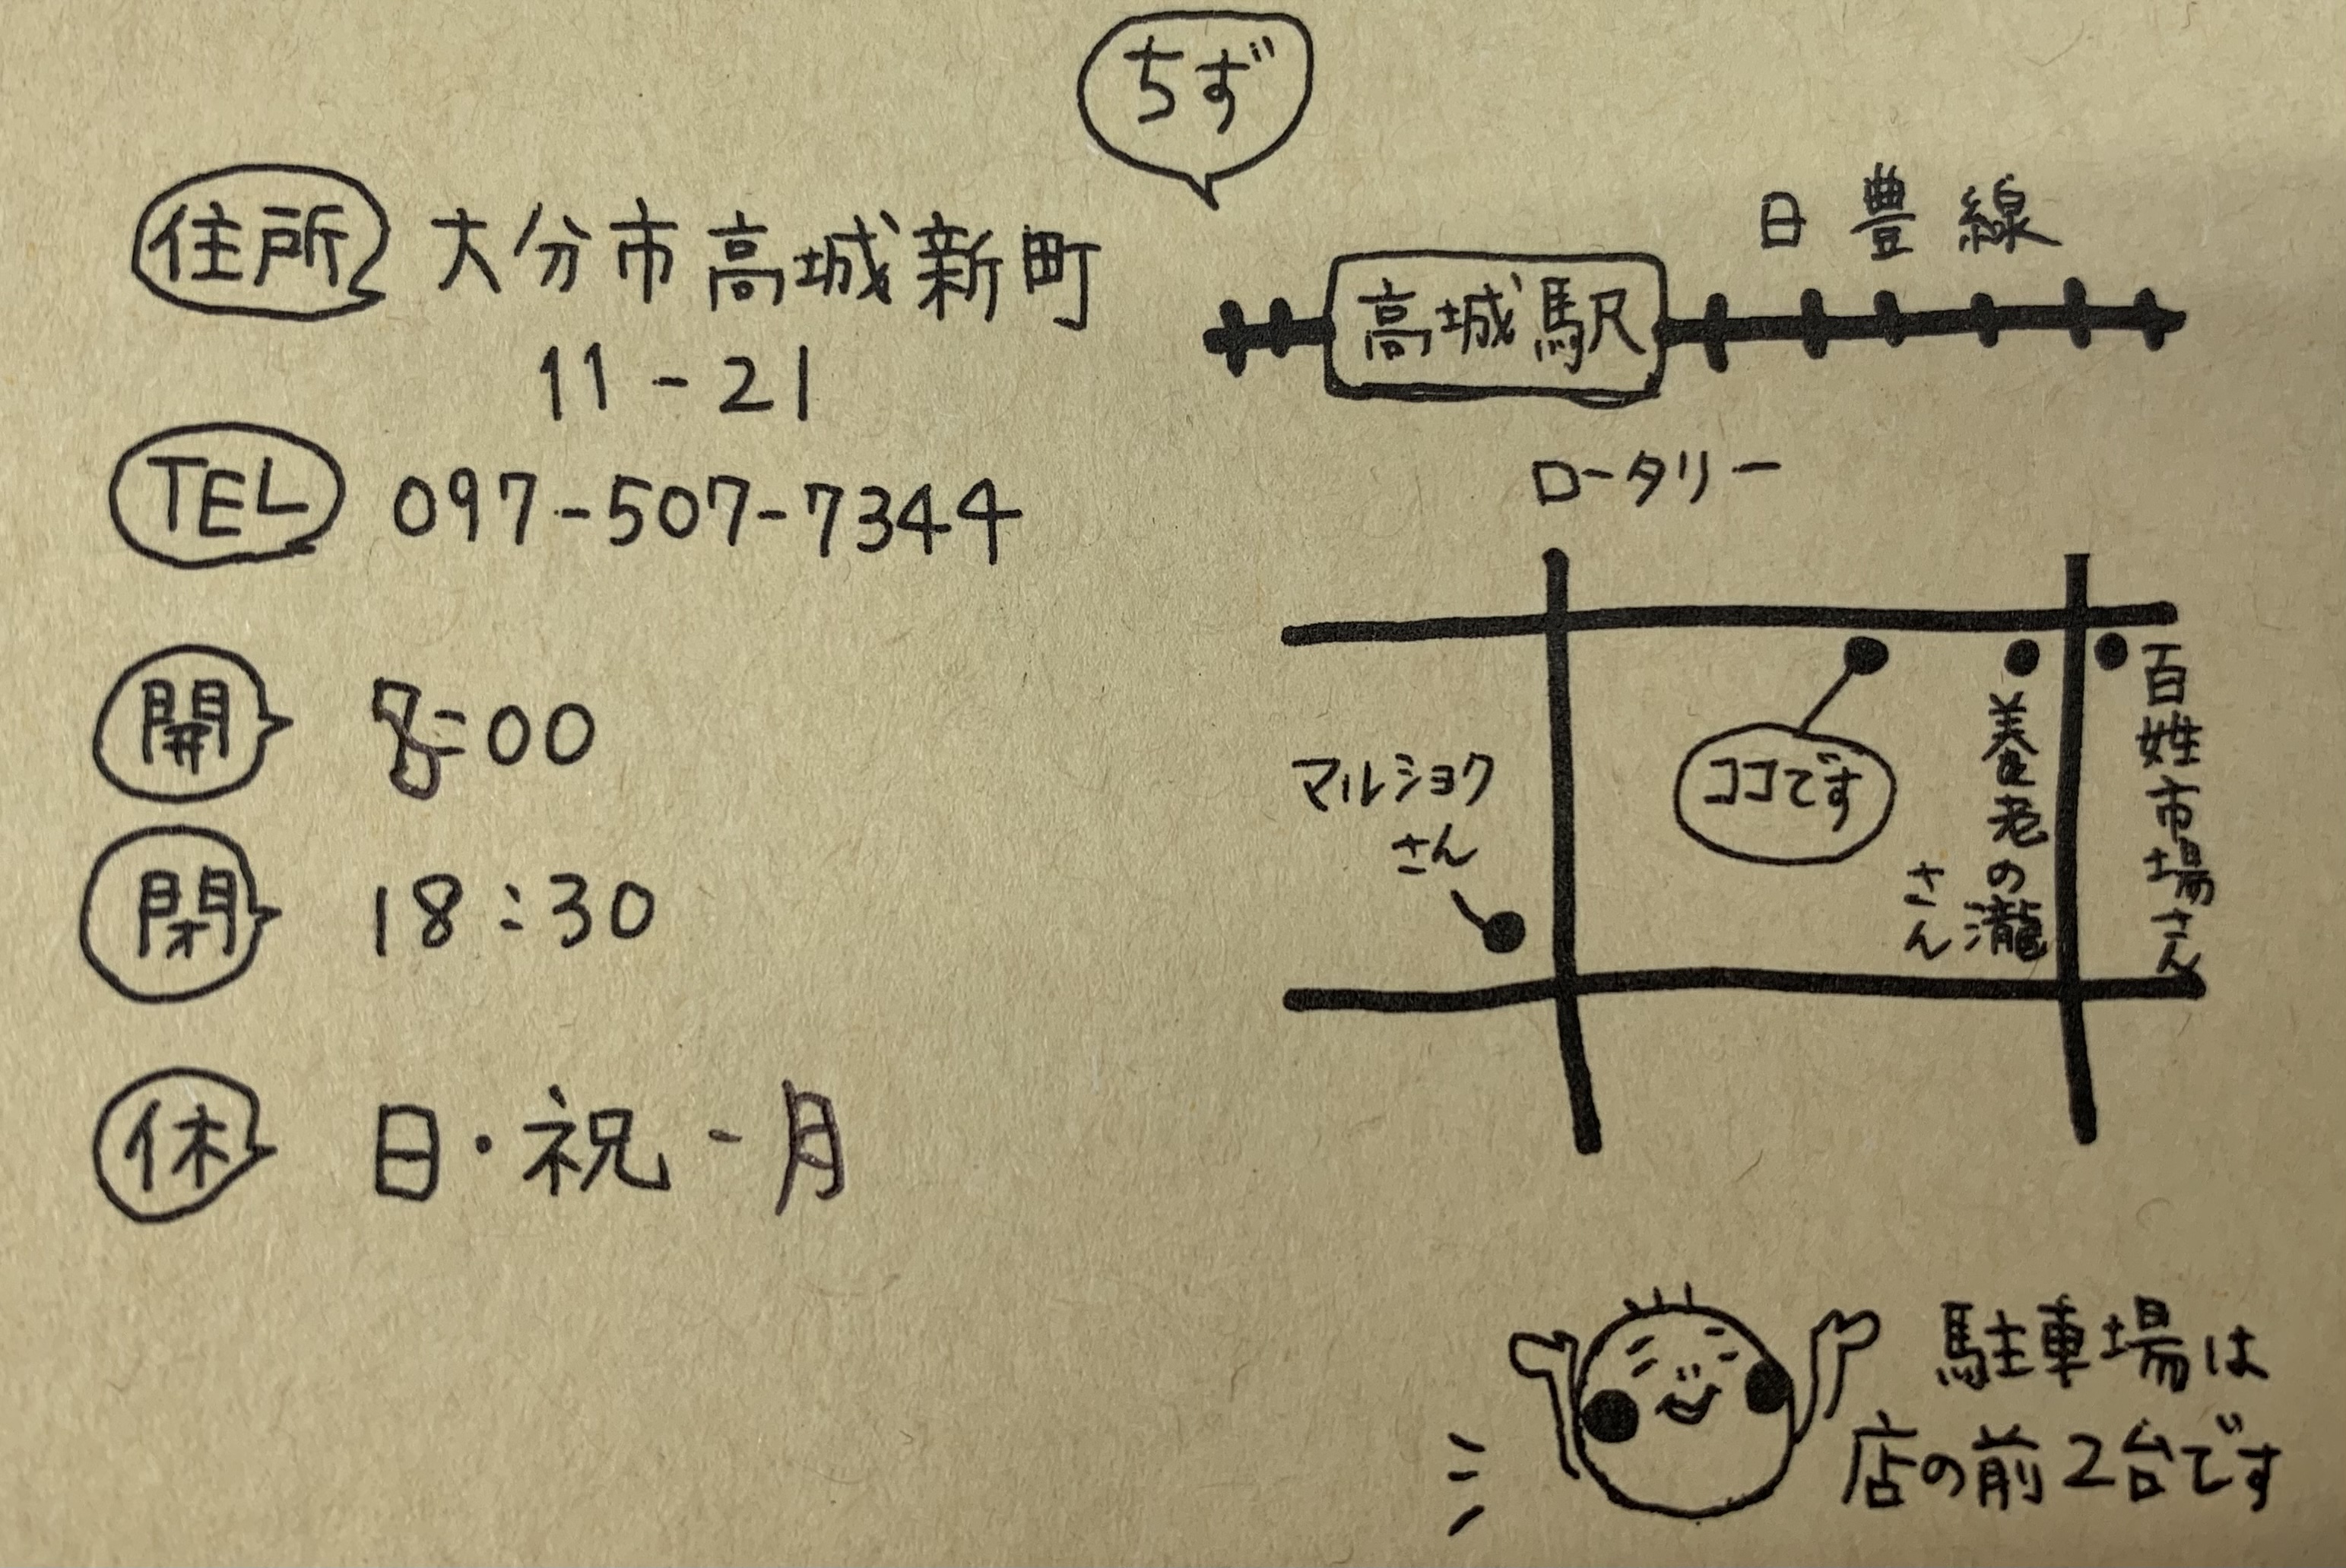 ちず
住所 大分市高城新町
11-21
TEL 097-507-7344
開 8:00
閉 18:30
休 日・祝-月
日豊線
高城駅
ロータリー
マルショク
さん
ココです
養老の瀧
さん
百姓市場さん
駐車場は
店の前2台です